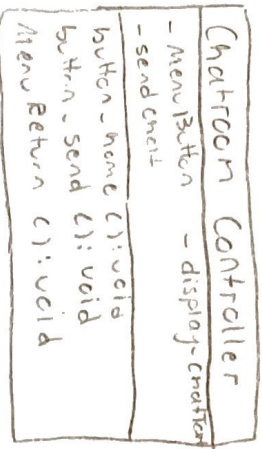 Chatroom Controller
- Menu Button - display-chatText
- send chat
button-home (): void
button-send (): void
Menu Return (): void